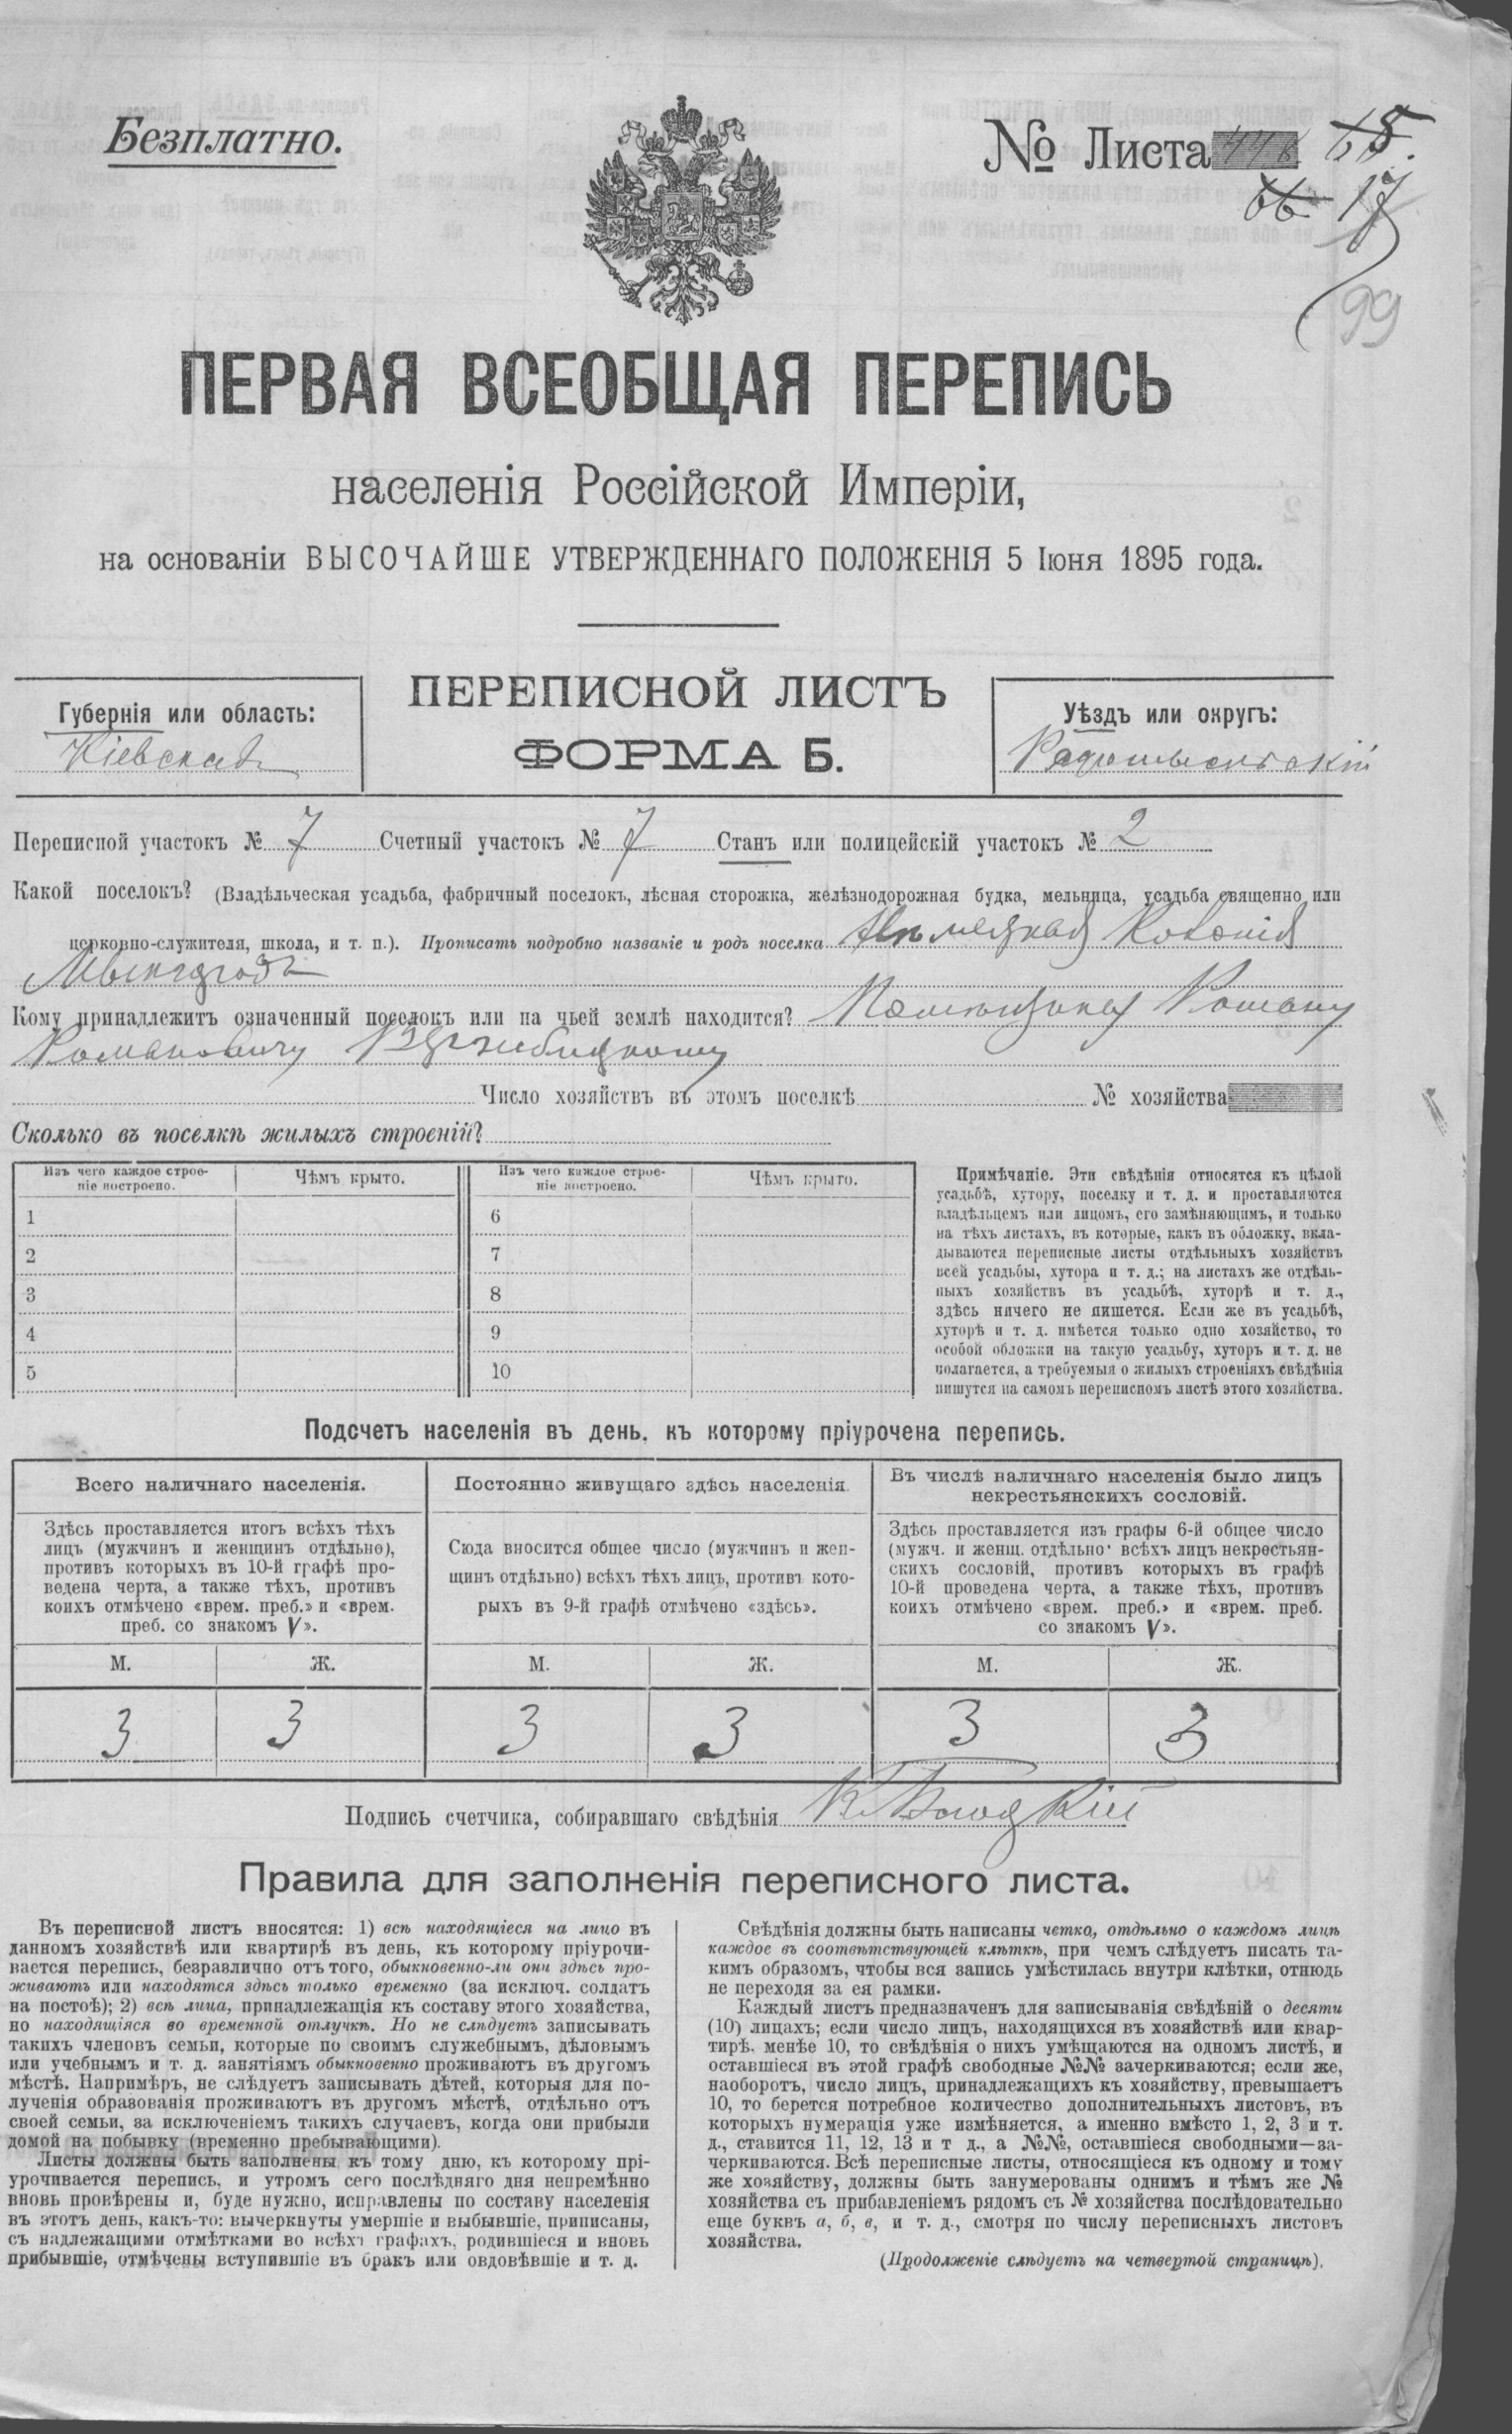 Безплатно.
№ Листа
17
99
ПЕРВАЯ ВСЕОБЩАЯ ПЕРЕПИСЬ
населенія Россійской Имперіи,
на основаніи ВЫСОЧАЙШЕ УТВЕРЖДЕННАГО ПОЛОЖЕНІЯ 5 Іюня 1895 года.
Губернія или область:
Кіевская
ПЕРЕПИСНОЙ ЛИСТЪ
ФОРМА Б.
Уѣздъ или округъ:
Радомысльскій
Переписной участокъ № 7 Счетный участокъ № 7 Станъ или полицейскій участокъ № 2
Какой поселокъ? (Владѣльческая усадьба, фабричный поселокъ, лѣсная сторожка, желѣзнодорожная будка, мельница, усадьба священно или
церковно-служителя, школа, и т. п.). Прописать подробно названіе и родъ поселка Нѣмецкая Колонія
Кому принадлежитъ означенный поселокъ или на чьей землѣ находится? Помѣщику Роману
Романовичу
Число хозяйствъ въ этомъ поселкѣ № хозяйства
Сколько въ поселкѣ жилыхъ строеній?
Изъ чего каждое строе-
ніе построено.
Чѣмъ крыто.
Изъ чего каждое строе-
ніе построено.
Чѣмъ крыто.
1 6
2 7
3 8
4 9
5 10
Примѣчаніе. Эти свѣдѣнія относятся къ цѣлой
усадьбѣ, хутору, поселку и т. д. и проставляются
владѣльцемъ или лицомъ, его замѣняющимъ, и только
на тѣхъ листахъ, въ которые, какъ въ обложку, вкла-
дываются переписные листы отдѣльныхъ хозяйствъ
всей усадьбы, хутора и т. д.; на листахъ же отдѣль-
ныхъ хозяйствъ въ усадьбѣ, хуторѣ и т. д.,
здѣсь ничего не пишется. Если же въ усадьбѣ,
хуторѣ и т. д. имѣется только одно хозяйство, то
особой обложки на такую усадьбу, хуторъ и т. д. не
полагается, а требуемыя о жилыхъ строеніяхъ свѣдѣнія
пишутся на самомъ переписномъ листѣ этого хозяйства.
Подсчетъ населенія въ день, къ которому пріурочена перепись.
Всего наличнаго населенія.
Здѣсь проставляется итогъ всѣхъ тѣхъ
лицъ (мужчинъ и женщинъ отдѣльно),
противъ которыхъ въ 10-й графѣ про-
ведена черта, а также тѣхъ, противъ
коихъ отмѣчено «врем. преб.» и «врем.
преб. со знакомъ V».
Постоянно живущаго здѣсь населенія.
Сюда вносится общее число (мужчинъ и жен-
щинъ отдѣльно) всѣхъ тѣхъ лицъ, противъ кото-
рыхъ въ 9-й графѣ отмѣчено «здѣсь».
Въ числѣ наличнаго населенія было лицъ
некрестьянскихъ сословій.
Здѣсь проставляется изъ графы 6-й общее число
(мужч. и женщ. отдѣльно) всѣхъ лицъ некрестьян-
скихъ сословій, противъ которыхъ въ графѣ
10-й проведена черта, а также тѣхъ, противъ
коихъ отмѣчено «врем. преб.» и «врем. преб.
со знакомъ V».
М. Ж. М. Ж. М. Ж.
3 3 3 3 3 3
Подпись счетчика, собиравшаго свѣдѣнія
Правила для заполненія переписного листа.
Въ переписной листъ вносятся: 1) всѣ находящіеся на лицо въ
данномъ хозяйствѣ или квартирѣ въ день, къ которому пріурочи-
вается перепись, безразлично отъ того, обыкновенно-ли они здѣсь про-
живаютъ или находятся здѣсь только временно (за исключ. солдатъ
на постоѣ); 2) всѣ лица, принадлежащія къ составу этого хозяйства,
но находящіяся во временной отлучкѣ. Но не слѣдуетъ записывать
такихъ членовъ семьи, которые по своимъ служебнымъ, дѣловымъ
или учебнымъ и т. д. занятіямъ обыкновенно проживаютъ въ другомъ
мѣстѣ. Напримѣръ, не слѣдуетъ записывать дѣтей, которыя для по-
лученія образованія проживаютъ въ другомъ мѣстѣ, отдѣльно отъ
своей семьи, за исключеніемъ такихъ случаевъ, когда они прибыли
домой на побывку (временно пребывающими).
Листы должны быть заполнены къ тому дню, къ которому прі-
урочивается перепись, и утромъ сего послѣдняго дня непремѣнно
вновь провѣрены и, буде нужно, исправлены по составу населенія
въ этотъ день, какъ-то: вычеркнуты умершіе и выбывшіе, приписаны,
съ надлежащими отмѣтками во всѣхъ графахъ, родившіеся и вновь
прибывшіе, отмѣчены вступившіе въ бракъ или овдовѣвшіе и т. д.
Свѣдѣнія должны быть написаны четко, отдѣльно о каждомъ лицѣ
каждое въ соотвѣтствующей клѣткѣ, при чемъ слѣдуетъ писать та-
кимъ образомъ, чтобы вся запись умѣстилась внутри клѣтки, отнюдь
не переходя за ея рамки.
Каждый листъ предназначенъ для записыванія свѣдѣній о десяти
(10) лицахъ; если число лицъ, находящихся въ хозяйствѣ или квар-
тирѣ, менѣе 10, то свѣдѣнія о нихъ умѣщаются на одномъ листѣ, и
оставшіеся въ этой графѣ свободные №№ зачеркиваются; если же,
наоборотъ, число лицъ, принадлежащихъ къ хозяйству, превышаетъ
10, то берется потребное количество дополнительныхъ листовъ, въ
которыхъ нумерація уже измѣняется, а именно вмѣсто 1, 2, 3 и т.
д., ставится 11, 12, 13 и т д., а №№, оставшіеся свободными—за-
черкиваются. Всѣ переписные листы, относящіеся къ одному и тому
же хозяйству, должны быть занумерованы однимъ и тѣмъ же №
хозяйства съ прибавленіемъ рядомъ съ № хозяйства послѣдовательно
еще буквъ а, б, в, и т. д., смотря по числу переписныхъ листовъ
хозяйства.
(Продолженіе слѣдуетъ на четвертой страницѣ).